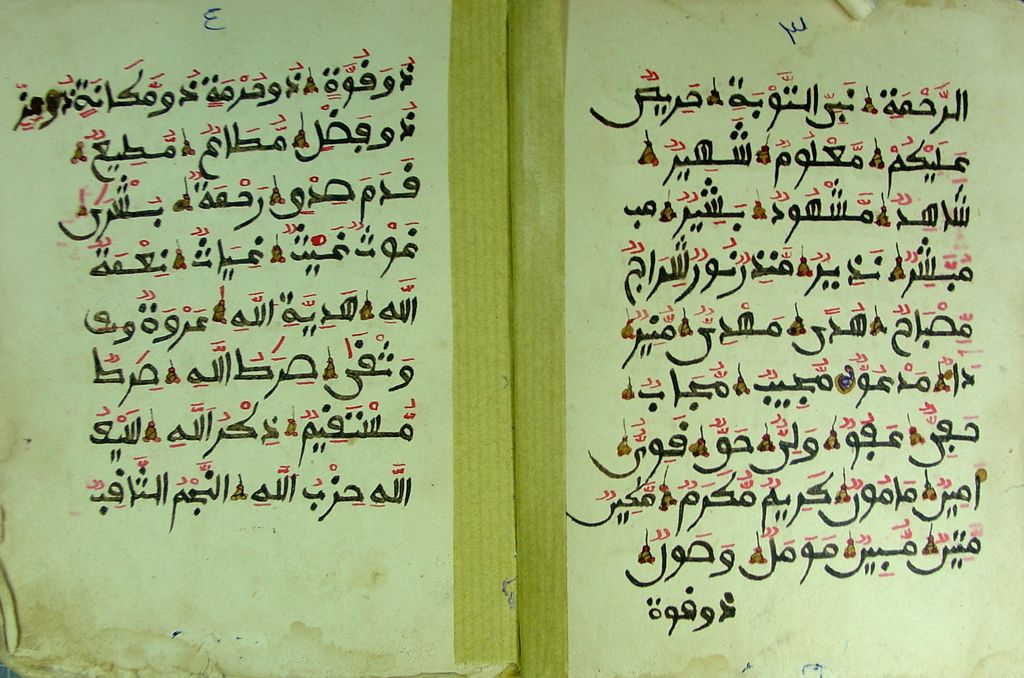 ٣
الرَّحْمَةِ نَبِيُّ التَّوْبَةِ حَرِيصٌ
عَلَيْكُمْ مَّعْلُومٌ شَهِيرٌ
شَاهِدٌ مَّشْهُودٌ بَشِيرٌ مب
مُبَشِّرٌ نَذِيرٌ مُنذِرٌ نُورٌ شِرَاجٌ
مِصْبَاحٌ هُدًى مَهْدِيٌّ مُنِيرٌ
دَاعٍ مَدْعُوٌّ مُجِيبٌ مُّجَابٌ
حَفِيٌّ عَفُوٌّ وَلِيٌّ حَقٌّ قَوِيٌّ
امِينٌ مَامُونٌ كَرِيمٌ مُّكَرَّمٌ مَّكِينٌ
مَتِينٌ مُّبِينٌ مُوَمَّلٌ وَصُولٌ
ذو قوة
٤
ذُو قُوَّةٍ ذُو حُرْمَةٍ ذُو مَكَانَةٍ ذُو عِزٍّ
ذُو فَضْلٍ مُّطَاعٌ مُّطِيعٌ
قَدَمُ صِدْقٍ رَحْمَةٌ بُشْرَى
غَوْثٌ غَيْثٌ غِيَاثٌ نِعْمَةُ
اللَّهِ هَدِيَّةُ اللَّهِ عُرْوَةٌ وث
وُثْقَى صِرَطُ اللَّهِ صِرَطٌ
مُّسْتَقِيمٌ ذِكْرُ اللَّهِ سَيْفُ
اللَّهِ حِزْبُ اللَّهِ النَّجْمُ الثَّاقِبُ